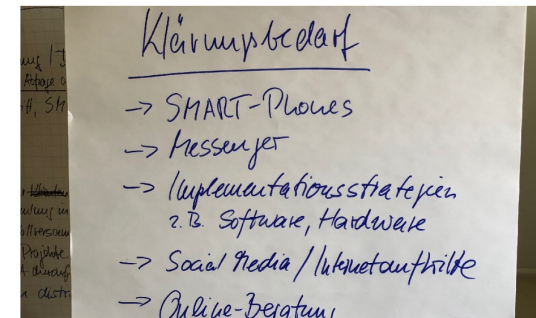 Klärungsbedarf
→ SMART-Phones
→ Messenger
→ Implementationsstrategien
z.B. Software, Hardware
→ Social Media / Internetauftritte
→ Online-Beratung